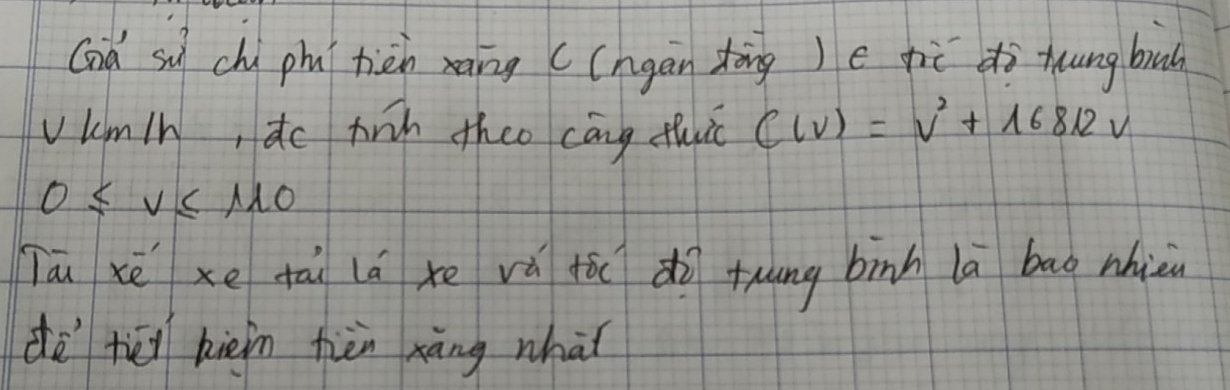 Giả sử chi phí tiền xăng C (ngàn đồng) c tốc độ trung bình
v km/h, đc tính theo công thức C(v) = v² + 16812 v
0 ≤ v ≤ 110
Tài xế xe tải lái xe vá tốc độ trung bình là bao nhiêu
để tiết kiệm tiền xăng nhất